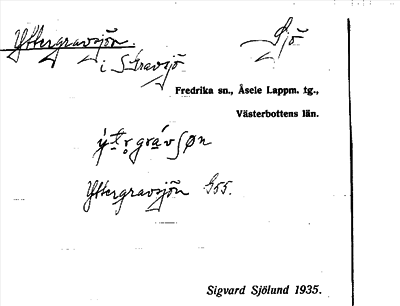 Yttergravsjön Sjö
i S Gravsjö
Fredrika sn., Åsele Lappm. tg.,
Västerbottens län.
Yttergravsjön G55.
Sigvard Sjölund 1935.